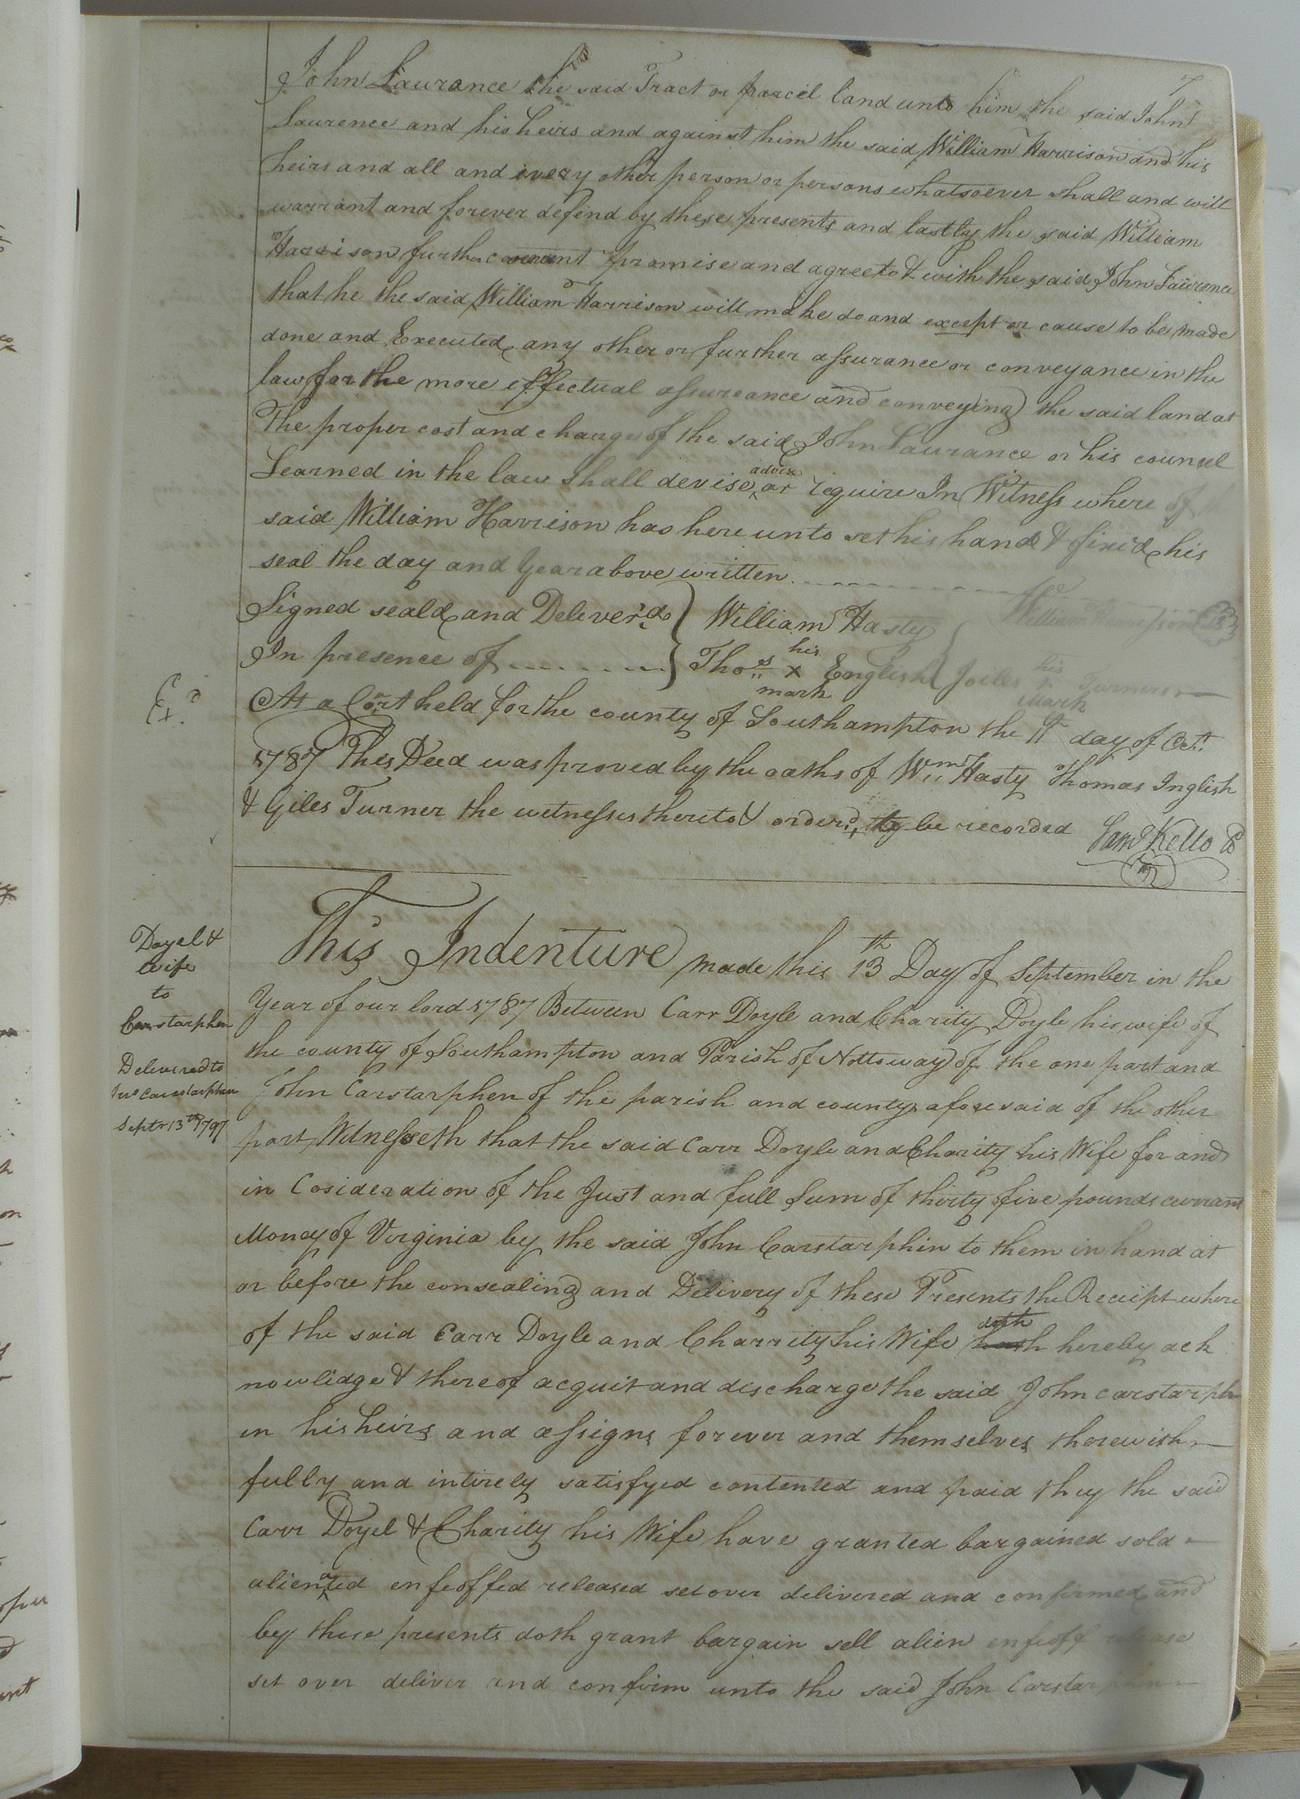 7
John Laurance the said Tract or parcel land unto him the said John
Laurence and his heirs and against him the said William Harrison and his
heirs and all and every other person or persons whatsoever shall and will
warrant and forever defend by these presents and lastly the said William
Harrison further covenant promise and agree to & with the said John Laurence
that he the said William Harrison will make do and except or cause to be made
done and Executed any other or further assurance or conveyance in the
law for the more effectual assureance and conveying the said land at
The proper cost and charge of the said John Laurance or his councel
Learned in the law shall devise advise or require In Witness where of
said William Harrison has here unto set his hand & fixed his
seal the day and year above written
Signed seald and Deliver'd William Hasty William Harrison
In presence of Thos his x mark English Joiles his mark Turner
Ex.d
At a Cort held for the county of Southampton the 11th day of Octr
1787 This Deed was proved by the oaths of Wm Hasty Thomas Inglish
& Giles Turner the witnesses thereto & order'd to be recorded Saml Kello
Doyel &
wife
to
Carstarphen
Delivered to
Jno Carstarphen
Septr 13th 1797
This Indenture made this 13th Day of September in the
Year of our lord 1787 Between Carr Doyle and Charity Doyle his wife of
the county of Southampton and Parish of Nottoway of the one part and
John Carstarphen of the parish and county aforesaid of the other
part Witnesseth that the said Carr Doyle and Charity his Wife for and
in Cosideration of the Just and full Sum of thirty five pounds currant
Money of Virginia by the said John Carstarphin to them in hand at
or before the ensealing and Delivery of these Presents the Receipt where
of the said Carr Doyle and Charrity his Wife hath doth hereby ack
nowlidge & thereof acquit and discharge the said John carstarph
en his heirs and assigns forever and themselves therewith
fully and intirely satisfyed contented and paid they the said
Carr Doyel & Charity his Wife have granted bargained sold
alienated enfeoffed released set over delivered and confirmed and
by these presents doth grant bargain sell alien enfeoff release
set over deliver and confirm unto the said John Carstarphin